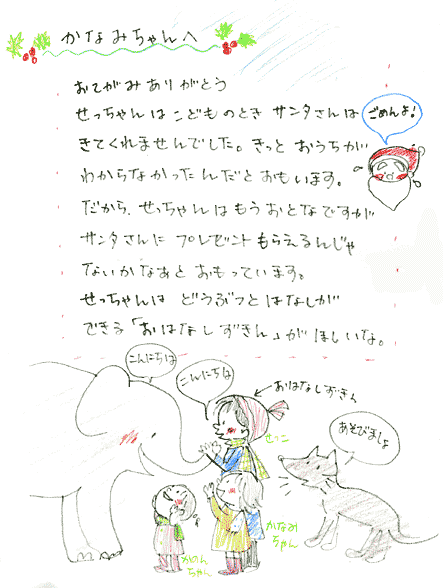 かなみちゃんへ
おてがみありがとう
せっちゃんはこどものとき サンタさんは
きてくれませんでした。きっと おうちが
わからなかったんだとおもいます。
だから、せっちゃんはもうおとなですが
サンタさんに プレゼントもらえるんじゃ
ないかなあと おもっています。
せっちゃんは どうぶつとはなしが
できる「おはなしずきん」がほしいな。
ごめんよ!
こんにちは
こんにちは
おはなしずきん
せつこ
あそびましょ
かのん
ちゃん
かなみ
ちゃん